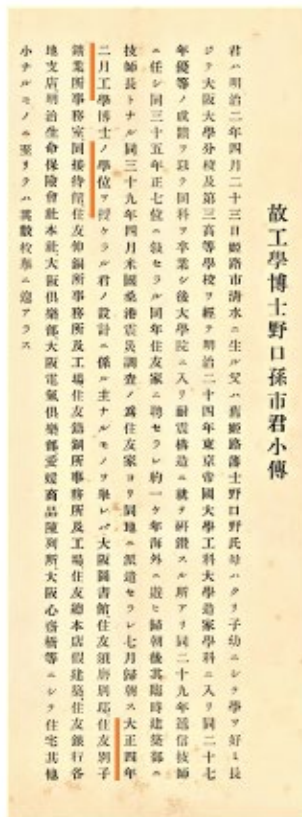 故工學博士野口孫市君小傳
君ハ明治二年四月二十三日姬路市清水ニ生ル父ハ舊姬路藩士野口野氏母ハクリ子幼ニシテ學ヲ好ミ長
ジテ大阪大學分校及第三高等學校ヲ經テ明治二十四年東京帝國大學工科大學造家學科ニ入リ同二十七
年優等ノ成績ヲ以テ同科ヲ卒業シ後大學院ニ入リ耐震構造ニ就テ研鑽スル所アリ同二十九年遞信技師
ニ任シ同三十五年正七位ニ敍セラル同年住友家ニ聘セラレ約一ケ年海外ニ遊ビ歸朝後其臨時建築部ニ
技師長トナル同三十九年四月米國桑港震災調査ノ爲住友家ヨリ同地ニ派遣セラレ七月歸朝ス大正四年
二月工學博士ノ學位ヲ授ケラル君ノ設計ニ係ル主ナルモノヲ擧レバ大阪圖書館住友須磨別邸住友別子
鑛業所事務室同接待館住友伸銅所事務所及工場住友鑄鋼所事務所及工場住友總本店假建築、住友銀行各
地支店、明治生命保險會社本社大阪俱樂部大阪電氣俱樂部愛媛商品陳列所、大阪心齋橋等ニシテ住宅其他
小ナルモノニ至リテハ其數枚擧ニ遑アラス